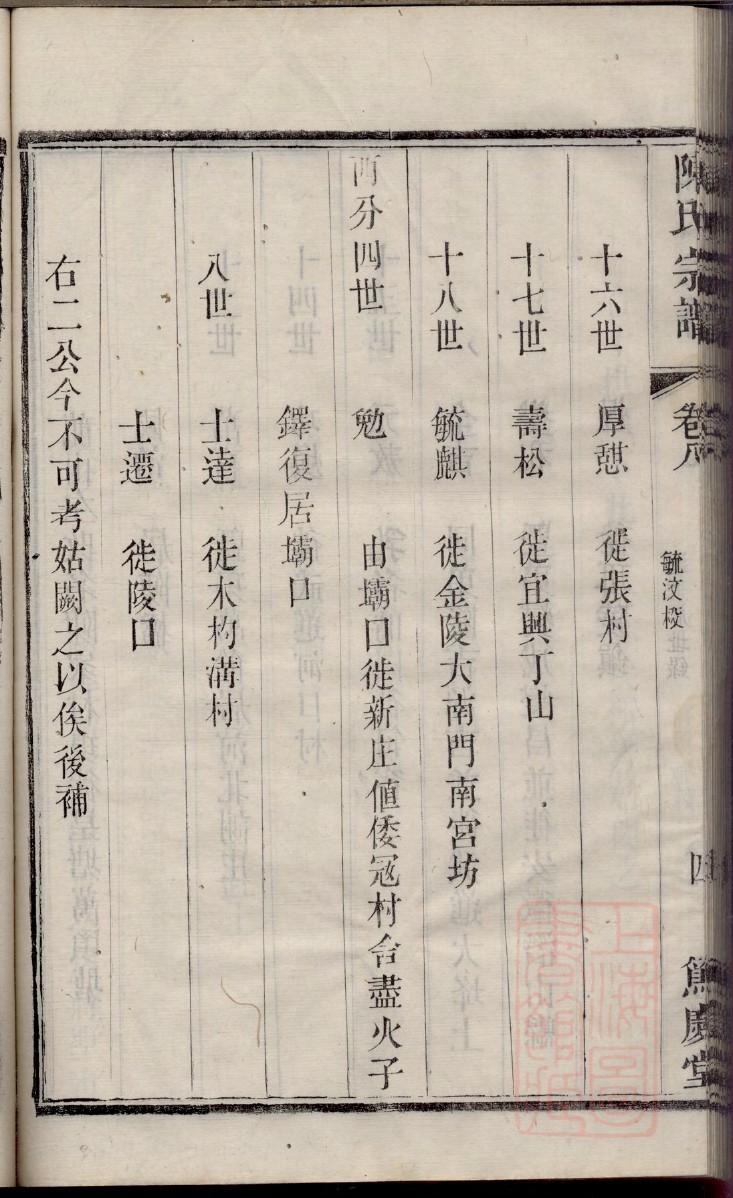 陳氏宗譜 卷八 四 篤慶堂
毓汶校
十六世 厚憇 徙張村
十七世 壽松 徙宜興丁山
十八世 毓麒 徙金陵大南門南宮坊
西分四世 勉 由壩口徙新庄値倭冦村舍盡火子
鐸復居壩口
八世 士達 徙木杓溝村
士遷 徙陵口
右二公今不可考姑闕之以俟後補